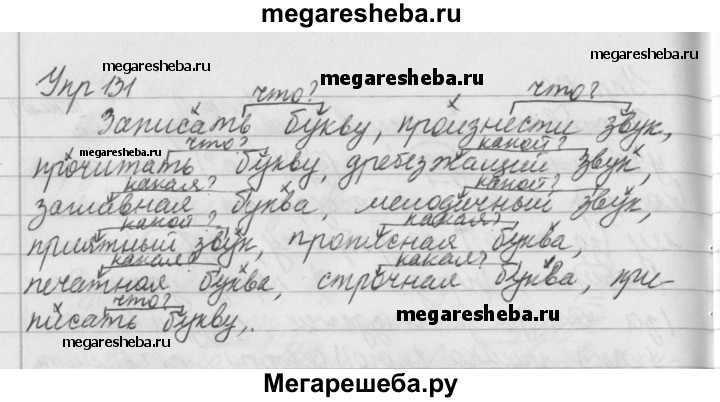 megaresheba.ru
megaresheba.ru
Упр 131
megaresheba.ru
что?
megaresheba.ru
что?
Записать букву, произнести звук,
megaresheba.ru
что?
какой?
прочитать букву, дребезжащий звук,
какая?
какой?
заглавная буква, мелодичный звук,
какой?
какая?
приятный звук, прописная буква,
какая?
какая?
печатная буква, строчная буква, при-
что?
писать букву,.
megaresheba.ru
megaresheba.ru
Мегарешеба.ру